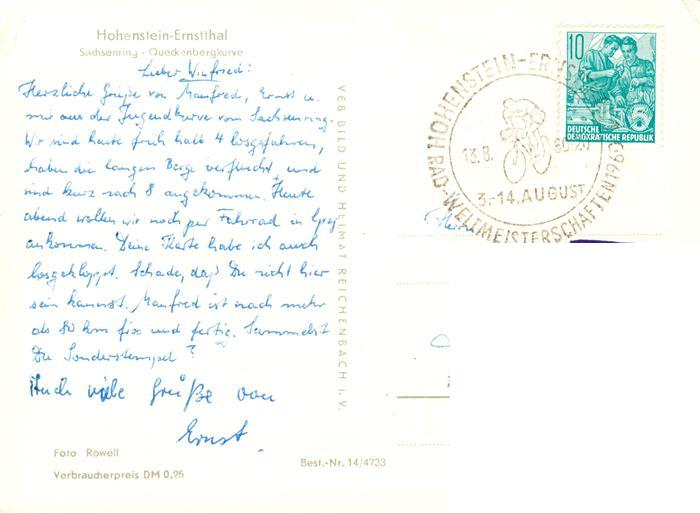 Hohenstein-Ernstthal
Sachsenring - Queckenbergkurve
Lieber Winfried!
Herzliche Grüße von Manfred, Ernst u.
mir aus der Jugendkurve vom Sachsenring.
Wir sind heute früh halb 4 losgefahren,
haben die langen Berge verflucht und
sind kurz nach 8 angekommen. Heute
abend wollen wir noch per Fahrrad in Lpzg
ankommen. Deine Karte habe ich auch
losgekloppt. Schade, daß Du nicht hier
sein kannst. Manfred ist nach mehr
als 80 km fix und fertig. Sammelst
Du Sonderstempel?
Auch viele Grüße von
Ernst.
Foto Rowell
Verbraucherpreis DM 0,25
Best.-Nr. 14/4733
VEB BILD UND HEIMAT REICHENBACH i. V.
HOHENSTEIN-ERNST
13.8. 60
3.-14. AUGUST
RAD-WELTMEISTERSCHAFTEN 1960
10
DEUTSCHE
DEMOKRATISCHE REPUBLIK
5